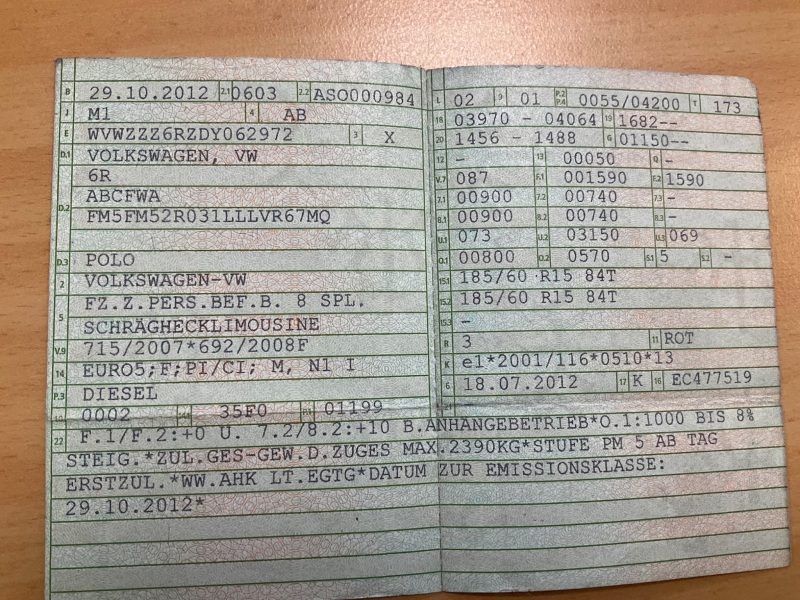 B 29.10.2012 2.1 0603 2.2 ASO000984
J M1 4 AB
E WVWZZZ6RZDY062972 3 X
D.1 VOLKSWAGEN, VW
6R
D.2 ABCFWA
FM5FM52R031LLLVR67MQ
D.3 POLO
2 VOLKSWAGEN-VW
5 FZ.Z.PERS.BEF.B. 8 SPL.
SCHRÄGHECKLIMOUSINE
V.9 715/2007*692/2008F
14 EURO5;F;PI/CI; M, N1 I
P.3 DIESEL
10 0002 14.1 35F0 P.1 01199
L 02 9 01 P.2 P.4 0055/04200 T 173
18 03970 - 04064 19 1682--
20 1456 - 1488 G 01150--
12 - 13 00050 Q -
V.7 087 F.1 001590 F.2 1590
7.1 00900 7.2 00740 7.3 -
8.1 00900 8.2 00740 8.3 -
U.1 073 U.2 03150 U.3 069
O.1 00800 O.2 0570 S.1 5 S.2 -
15.1 185/60 R15 84T
15.2 185/60 R15 84T
15.3 -
R 3 11 ROT
K e1*2001/116*0510*13
6 18.07.2012 17 K 16 EC477519
21
22 F.1/F.2:+0 U. 7.2/8.2:+10 B.ANHANGEBETRIEB*O.1:1000 BIS 8%
STEIG.*ZUL.GES-GEW.D.ZUGES MAX.2390KG*STUFE PM 5 AB TAG
ERSTZUL.*WW.AHK LT.EGTG*DATUM ZUR EMISSIONSKLASSE:
29.10.2012*